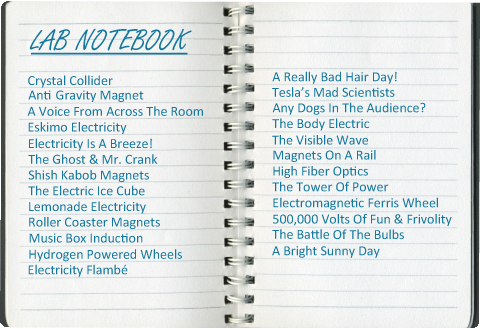 LAB NOTEBOOK
Crystal Collider
Anti Gravity Magnet
A Voice From Across The Room
Eskimo Electricity
Electricity Is A Breeze!
The Ghost & Mr. Crank
Shish Kabob Magnets
The Electric Ice Cube
Lemonade Electricity
Roller Coaster Magnets
Music Box Induction
Hydrogen Powered Wheels
Electricity Flambé
A Really Bad Hair Day!
Tesla's Mad Scientists
Any Dogs In The Audience?
The Body Electric
The Visible Wave
Magnets On A Rail
High Fiber Optics
The Tower Of Power
Electromagnetic Ferris Wheel
500,000 Volts Of Fun & Frivolity
The Battle Of The Bulbs
A Bright Sunny Day